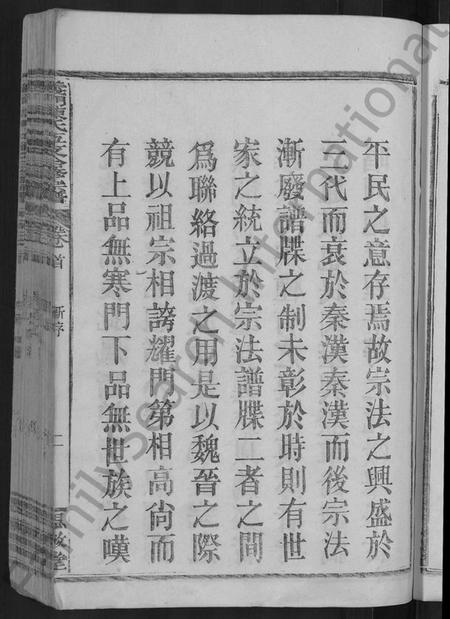 平民之意存焉故宗法之興盛於
三代而衰於秦漢秦漢而後宗法
漸廢譜牒之制未彰於時則有世
家之統立於宗法譜牒二者之間
爲聯絡過渡之用是以魏晉之際
競以祖宗相誇耀門第相高尙而
有上品無寒門下品無世族之嘆
卷首
新序
二
FamilySearch International